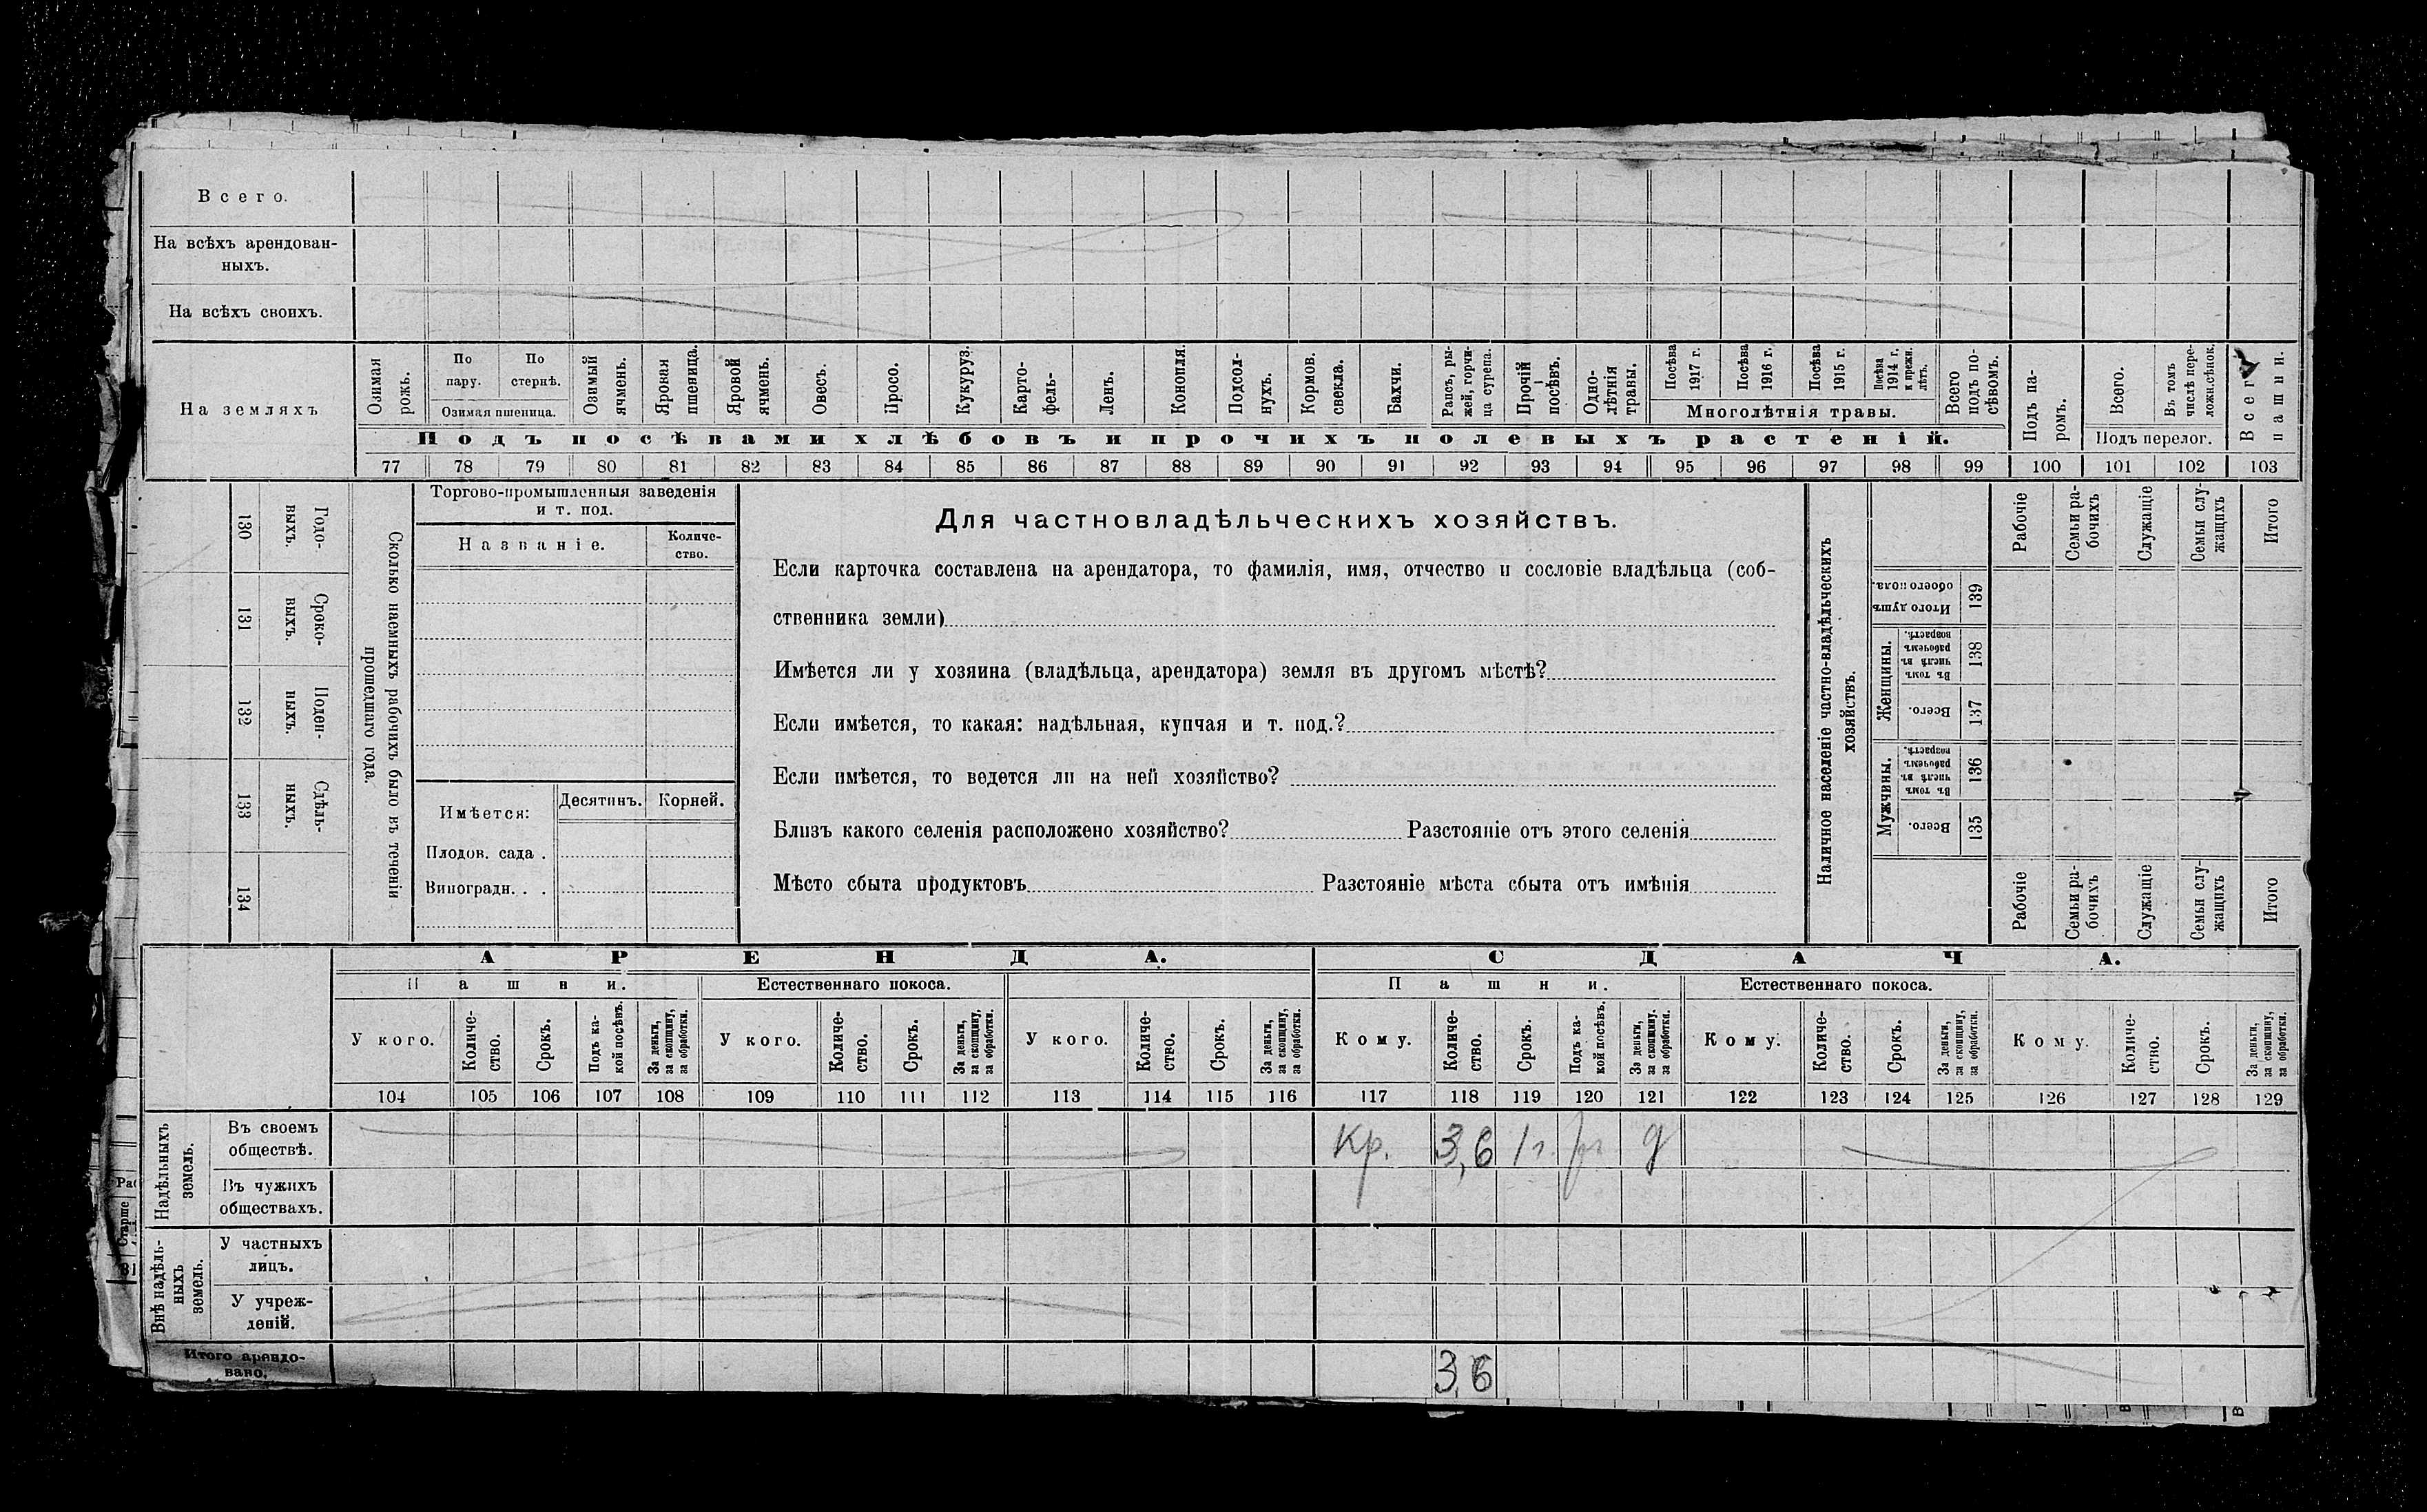 Всего.
На всѣхъ арендован-
ныхъ.
На всѣхъ своихъ.
На земляхъ
Озимая рожь.
По пару.
По стернѣ.
Озимая пшеница.
Озимый ячмень.
Яровая пшеница.
Яровой ячмень.
Овесъ.
Просо.
Кукуруз.
Карто-
фель-
Ленъ.
Конопля.
Подсол-
нухъ.
Кормов.
свекла.
Бахчи.
Рапсъ, ры-
жей, горчи-
ца сурепа.
Прочій
посѣвъ.
Одно-
лѣтнія
травы.
Посѣва
1917 г.
Посѣва
1916 г.
Посѣва
1915 г.
Посѣва
1914 г.
и прежн.
лѣтъ.
Многолѣтнія травы.
Всего
подъ по-
сѣвомъ.
Подъ па-
ромъ.
Всего.
Въ томъ
числѣ пере-
ложн.сѣнок.
Подъ перелог.
Всего
пашни.
Подъ посѣвами хлѣбовъ и прочихъ полевыхъ растеній.
77 78 79 80 81 82 83 84 85 86 87 88 89 90 91 92 93 94 95 96 97 98 99 100 101 102 103
130
Годо-
выхъ.
131
Сроко-
выхъ.
132
Поден-
ныхъ.
133
Сдѣль-
ныхъ.
134
Сколько наемныхъ рабочихъ было въ теченіи
прошедшаго года.
Торгово-промышленныя заведенія
и т. под.
Названіе.
Количе-
ство.
Имѣется:
Десятинъ.
Корней.
Плодов. сада .
Виноградн. . .
Для частновладѣльческихъ хозяйствъ.
Если карточка составлена на арендатора, то фамилія, имя, отчество и сословіе владѣльца (соб-
ственника земли)
Имѣется ли у хозяина (владѣльца, арендатора) земля въ другомъ мѣстѣ?
Если имѣется, то какая: надѣльная, купчая и т. под.?
Если имѣется, то ведется ли на ней хозяйство?
Близъ какого селенія расположено хозяйство? Разстояніе отъ этого селенія
Мѣсто сбыта продуктовъ Разстояніе мѣста сбыта отъ имѣнія
Наличное населеніе частно-владѣльческихъ
хозяйствъ.
Итого душъ
обоего пола.
139
Женщины.
Въ томъ
числѣ въ
рабочемъ
возрастѣ.
138
Всего.
137
Мужчины.
Въ томъ
числѣ въ
рабочемъ
возрастѣ.
136
Всего.
135
Рабочіе
Семьи ра-
бочихъ
Служащіе
Семьи слу-
жащихъ
Итого
Рабочіе
Семьи ра-
бочихъ
Служащіе
Семьи слу-
жащихъ
Итого
АРЕНДА.
СДАЧА.
Пашни.
Естественнаго покоса.
Пашни.
Естественнаго покоса.
У кого.
Количе-
ство.
Срокъ.
Подъ ка-
кой посѣвъ.
За деньги,
за скопщину,
за обработки.
У кого.
Количе-
ство.
Срокъ.
За деньги,
за скопщину,
за обработки.
У кого.
Количе-
ство.
Срокъ.
За деньги,
за скопщину,
за обработки.
Кому.
Количе-
ство.
Срокъ.
Подъ ка-
кой посѣвъ.
За деньги,
за скопщину,
за обработки.
Кому.
Количе-
ство.
Срокъ.
За деньги,
за скопщину,
за обработки.
Кому.
Количе-
ство.
Срокъ.
За деньги,
за скопщину,
за обработки.
104 105 106 107 108 109 110 111 112 113 114 115 116 117 118 119 120 121 122 123 124 125 126 127 128 129
Надѣльныхъ
земель.
Въ своемъ
обществѣ.
Кр. 3,6 1г. д
Въ чужихъ
обществахъ.
Внѣ надѣль-
ныхъ
земель.
У частныхъ
лицъ.
У учреж-
деній.
Итого арендо-
вано.
3,6
Старше